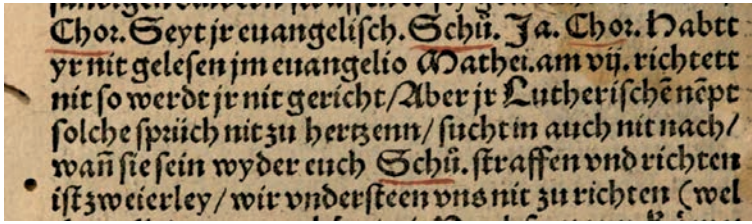 Chor. Seyt jr euangelisch. Schů. Ja. Chor. Habtt
yr nit gelesen jm euangelio Mathei. am vij. richtett
nit so werdt jr nit gericht/ Aber jr Lutherischē nēpt
solche sprüch nit zu hertzenn/ sucht in auch nit nach/
wañ sie sein wyder euch Schů. straffen vnd richten
ist zweierley/ wir vndersteen vns nit zu richten (wel